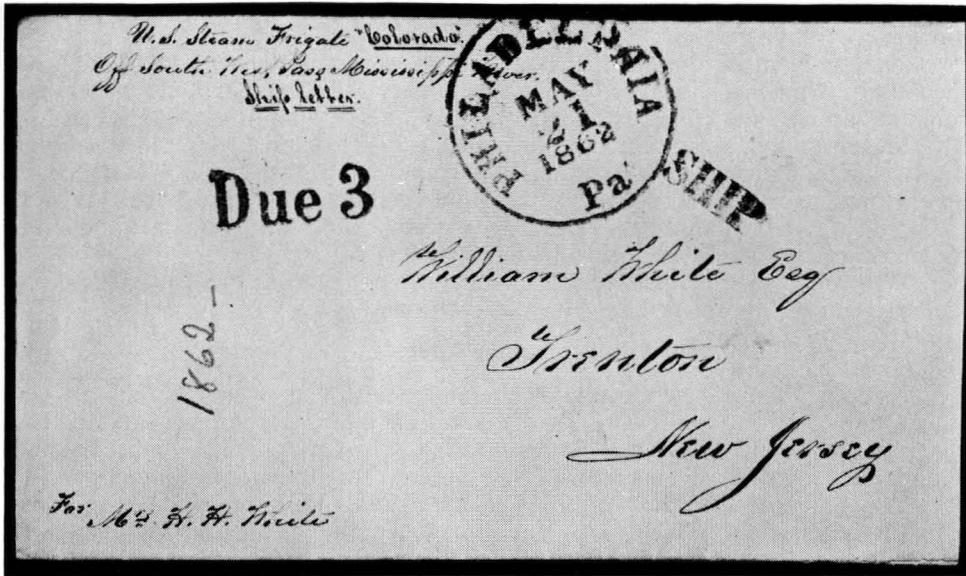 U.S. Steam Frigate "Colorado".
Off South West Pass Mississippi River.
Ship letter.
PHILADELPHIA Pa
MAY
21
1862
SHIP
Due 3
William White Esq
Trenton
New Jersey
1862 -
For Mrs. H. H. White